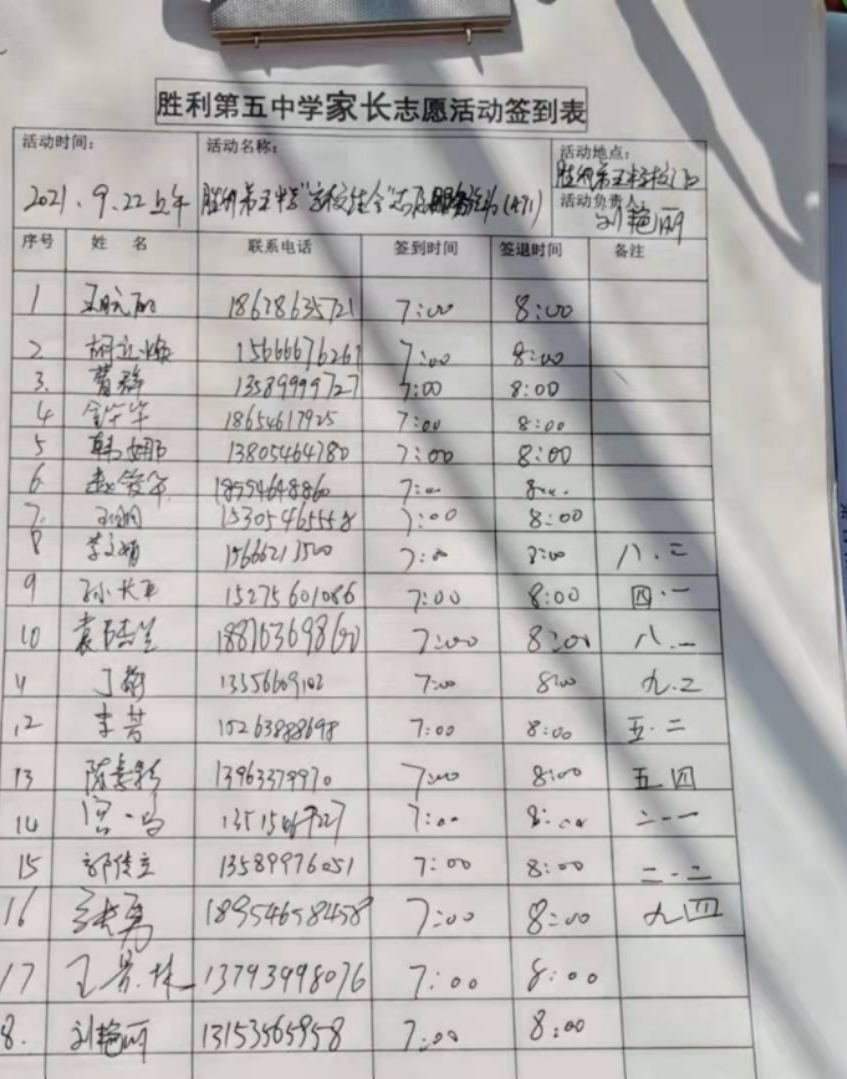 胜利第五中学家长志愿活动签到表
活动时间： 活动名称： 活动地点：
2021.9.22上午 胜利第五中学"学校安全"志愿服务活动 胜利第五中学校门口
活动负责人： 刘艳丽
序号 姓 名 联系电话 签到时间 签退时间 备注
1 18678635721 7:00 8:00
2 15666676261 7:00 8:00
3. 曹群 13589999727 7:00 8:00
4 金华华 18654617925 7:00 8:00
5 韩娜 13805464780 7:00 8:00
6 18554648860 7:00 8:00
7. 15305465558 7:00 8:00
8 李文娟 7:00 8:00 八.二
9 孙长卫 15275601086 7:00 8:00 四.一
10 7:00 8:00 八.一
11 丁静 13356609102 7:00 8:00 九.2
12 李菁 15263888698 7:00 8:00 五.二
13 13963379970 7:00 8:00 五四
14 7:00 8:00 二.一
15 郭传立 13589976051 7:00 8:00 二.二
16 张勇 18954658458 7:00 8:00 九四
17 王景林 13793998076 7:00 8:00
8. 刘艳丽 13153565958 7:00 8:00